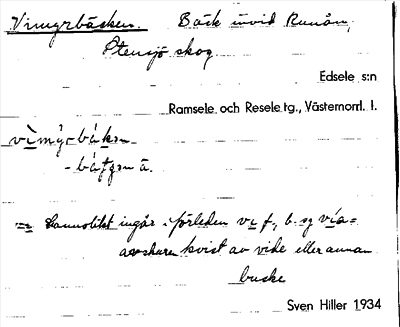 Vimyrbäcken. Bäck invid Runån,
Stensjö skog
Edsele s:n
Ramsele och Resele tg., Västernorrl. l.
vìmýrbäkən
- bä
= Sannolikt ingår i förleden vi f., b. sg via =
avskuren kvist av vide eller annan
buske
Sven Hiller 1934